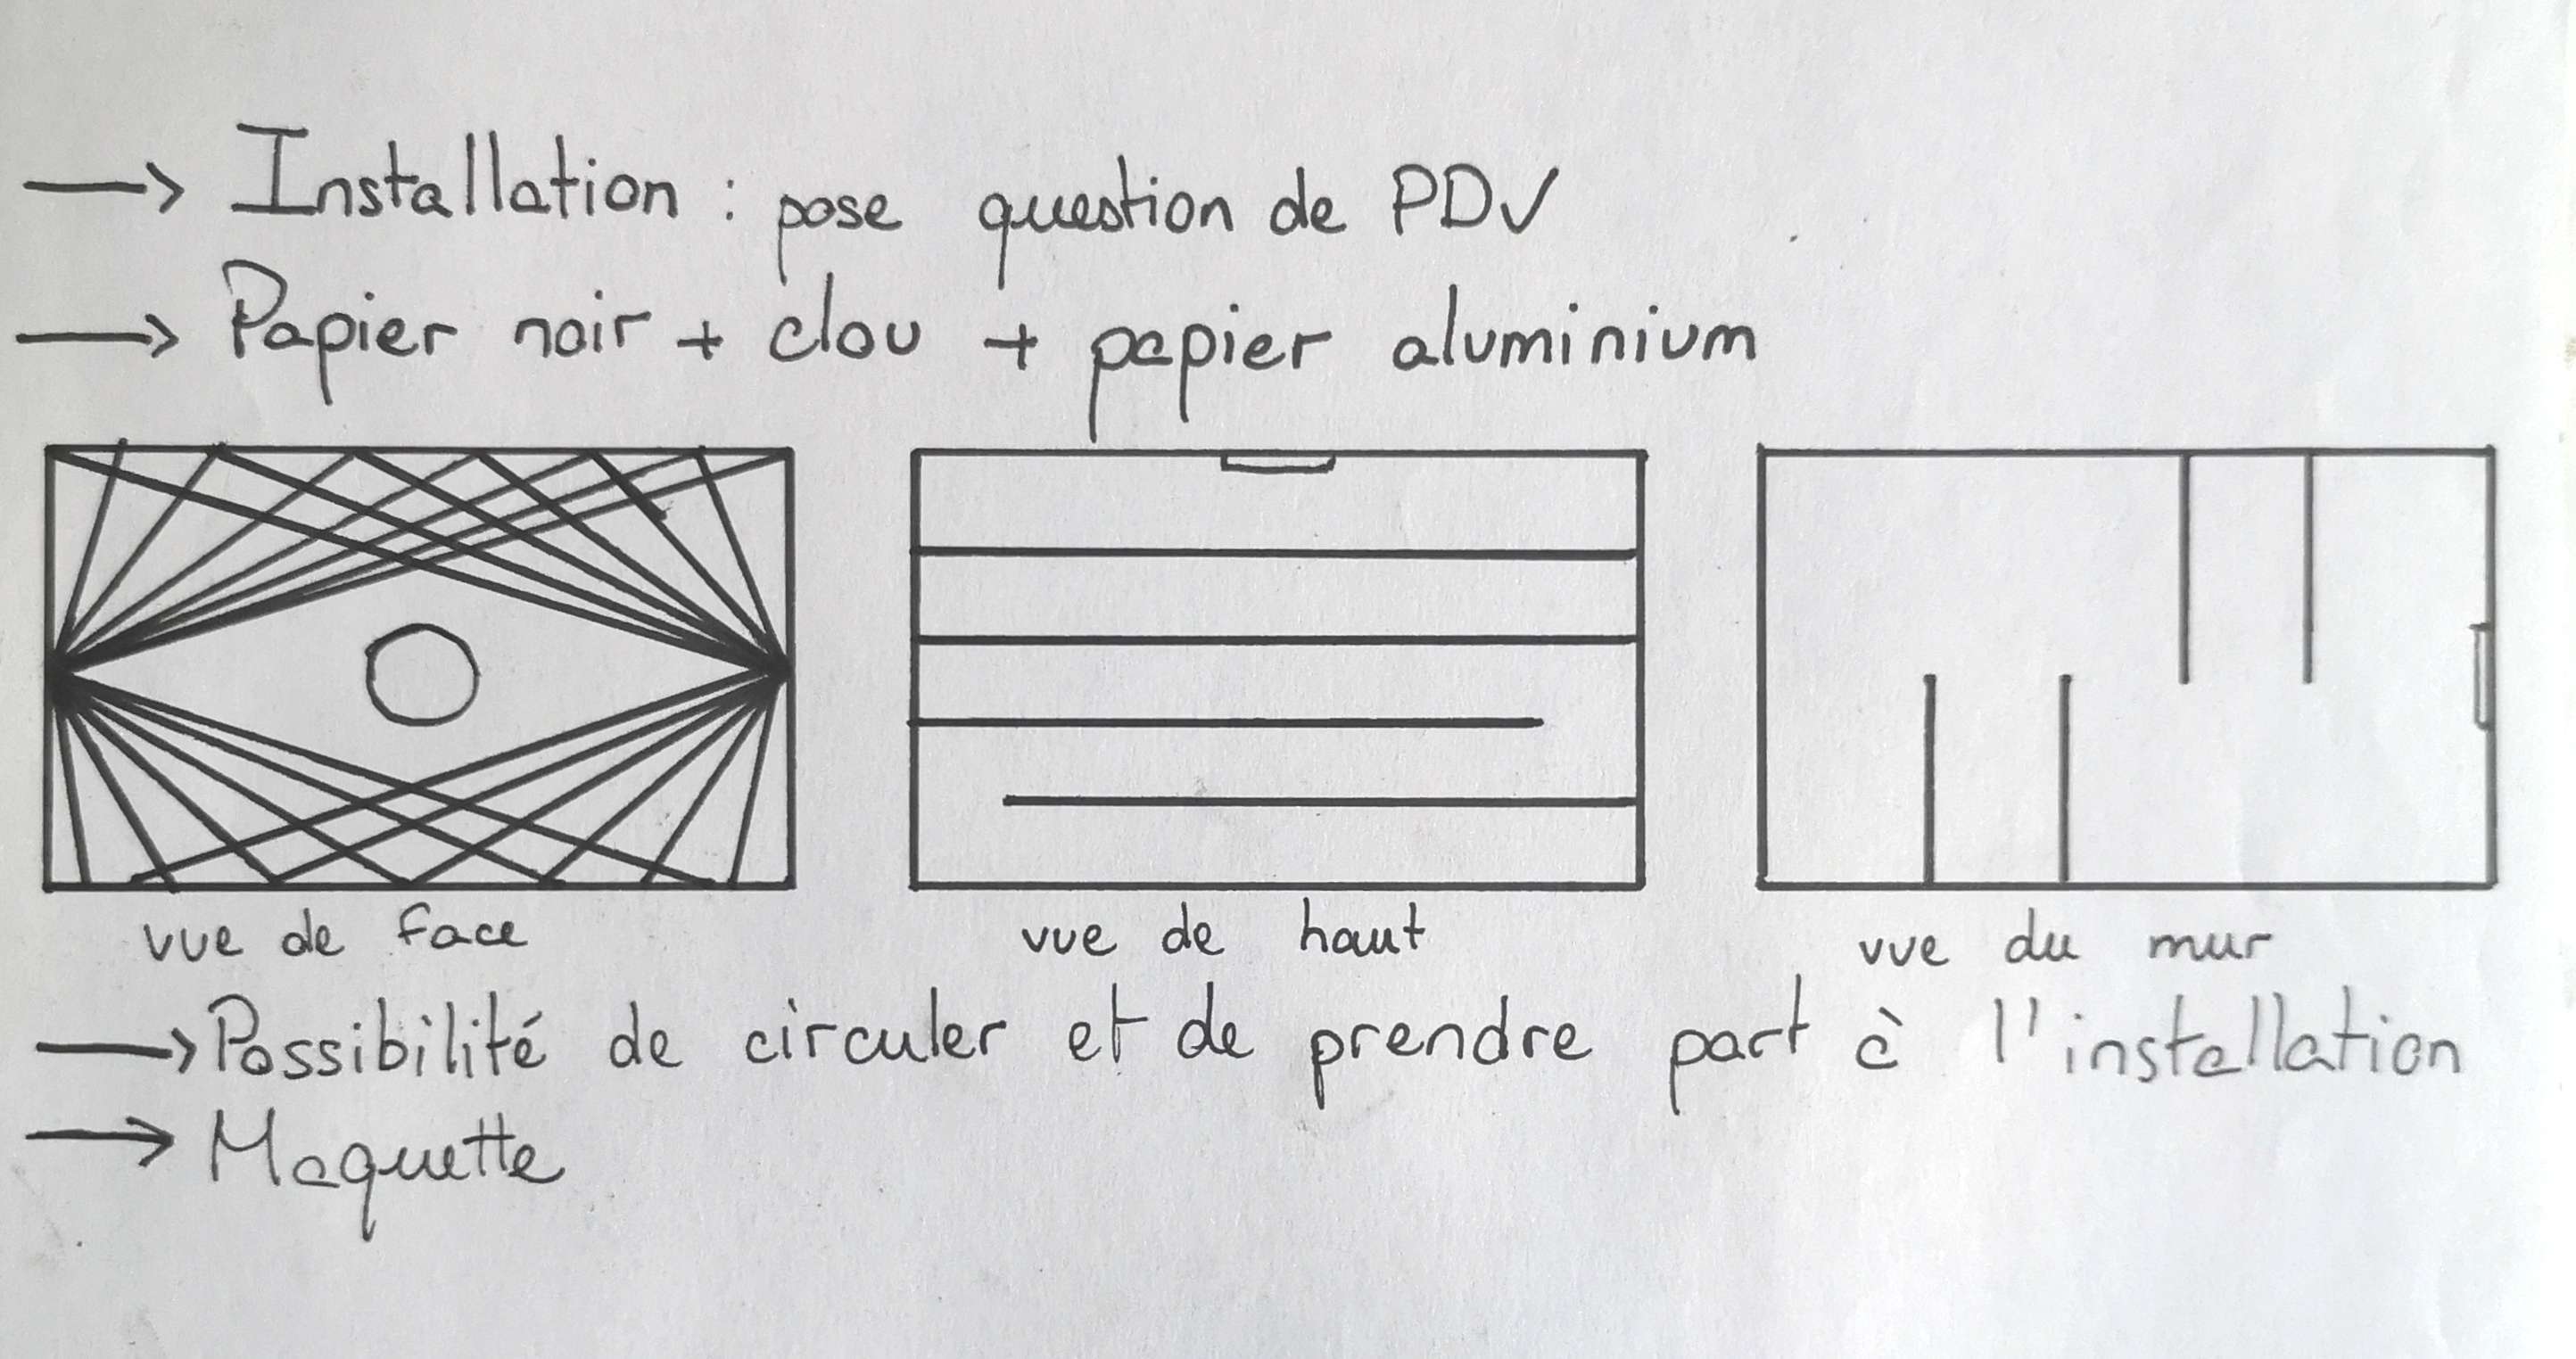 → Installation : pose question de PDV
→ Papier noir + clou + papier aluminium
vue de face
vue de haut
vue du mur
→ Possibilité de circuler et de prendre part à l'installation
→ Maquette